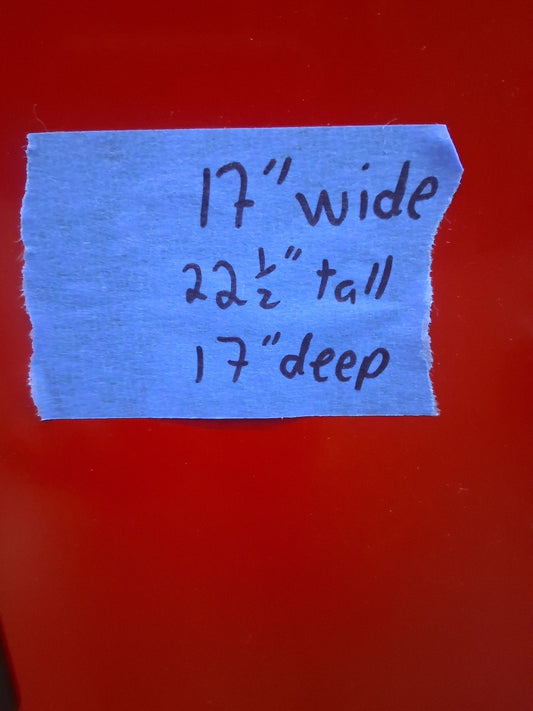 17" wide
22 1/2" tall
17" deep